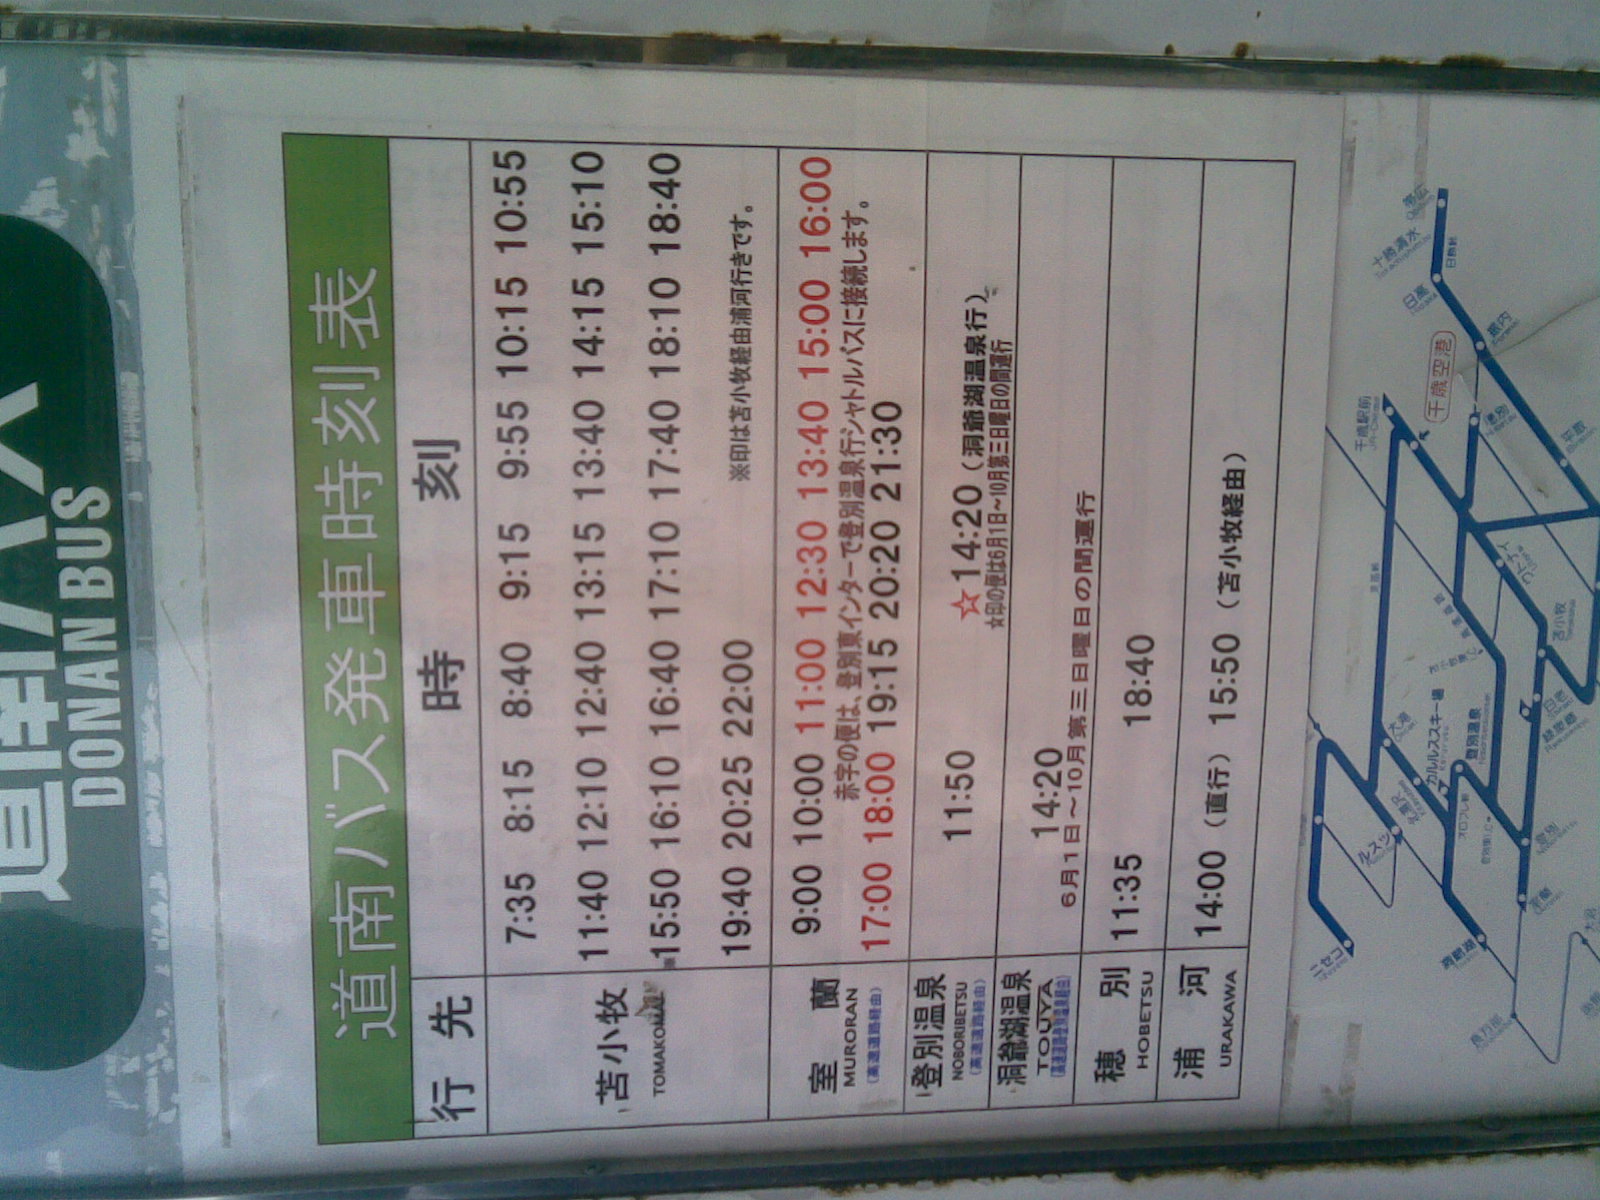 道南バス
DONAN BUS
道南バス発車時刻表
行先 時刻
苫小牧
TOMAKOMAI
7:35 8:15 8:40 9:15 9:55 10:15 10:55
11:40 12:10 12:40 13:15 13:40 14:15 15:10
※15:50 16:10 16:40 17:10 17:40 18:10 18:40
19:40 20:25 22:00 ※印は苫小牧経由浦河行きです。
室蘭
MURORAN
(高速道路経由)
9:00 10:00 11:00 12:30 13:40 15:00 16:00
赤字の便は、登別東インターで登別温泉行シャトルバスに接続します。
17:00 18:00 19:15 20:20 21:30
登別温泉
NOBORIBETSU
(高速道路経由)
11:50 ☆14:20(洞爺湖温泉行)
☆印の便は6月1日~10月第三日曜日の間運行
洞爺湖温泉
TOUYA
14:20
6月1日~10月第三日曜日の間運行
穂別
HOBETSU
11:35 18:40
浦河
URAKAWA
14:00(直行) 15:50(苫小牧経由)
帯広
十勝清水
日高
千歳空港
千歳駅前
穂別
平取
苫小牧
白老
大滝
カルルススキー場
登別温泉
ルスツ
登別
室蘭
ニセコ
洞爺湖
長万部